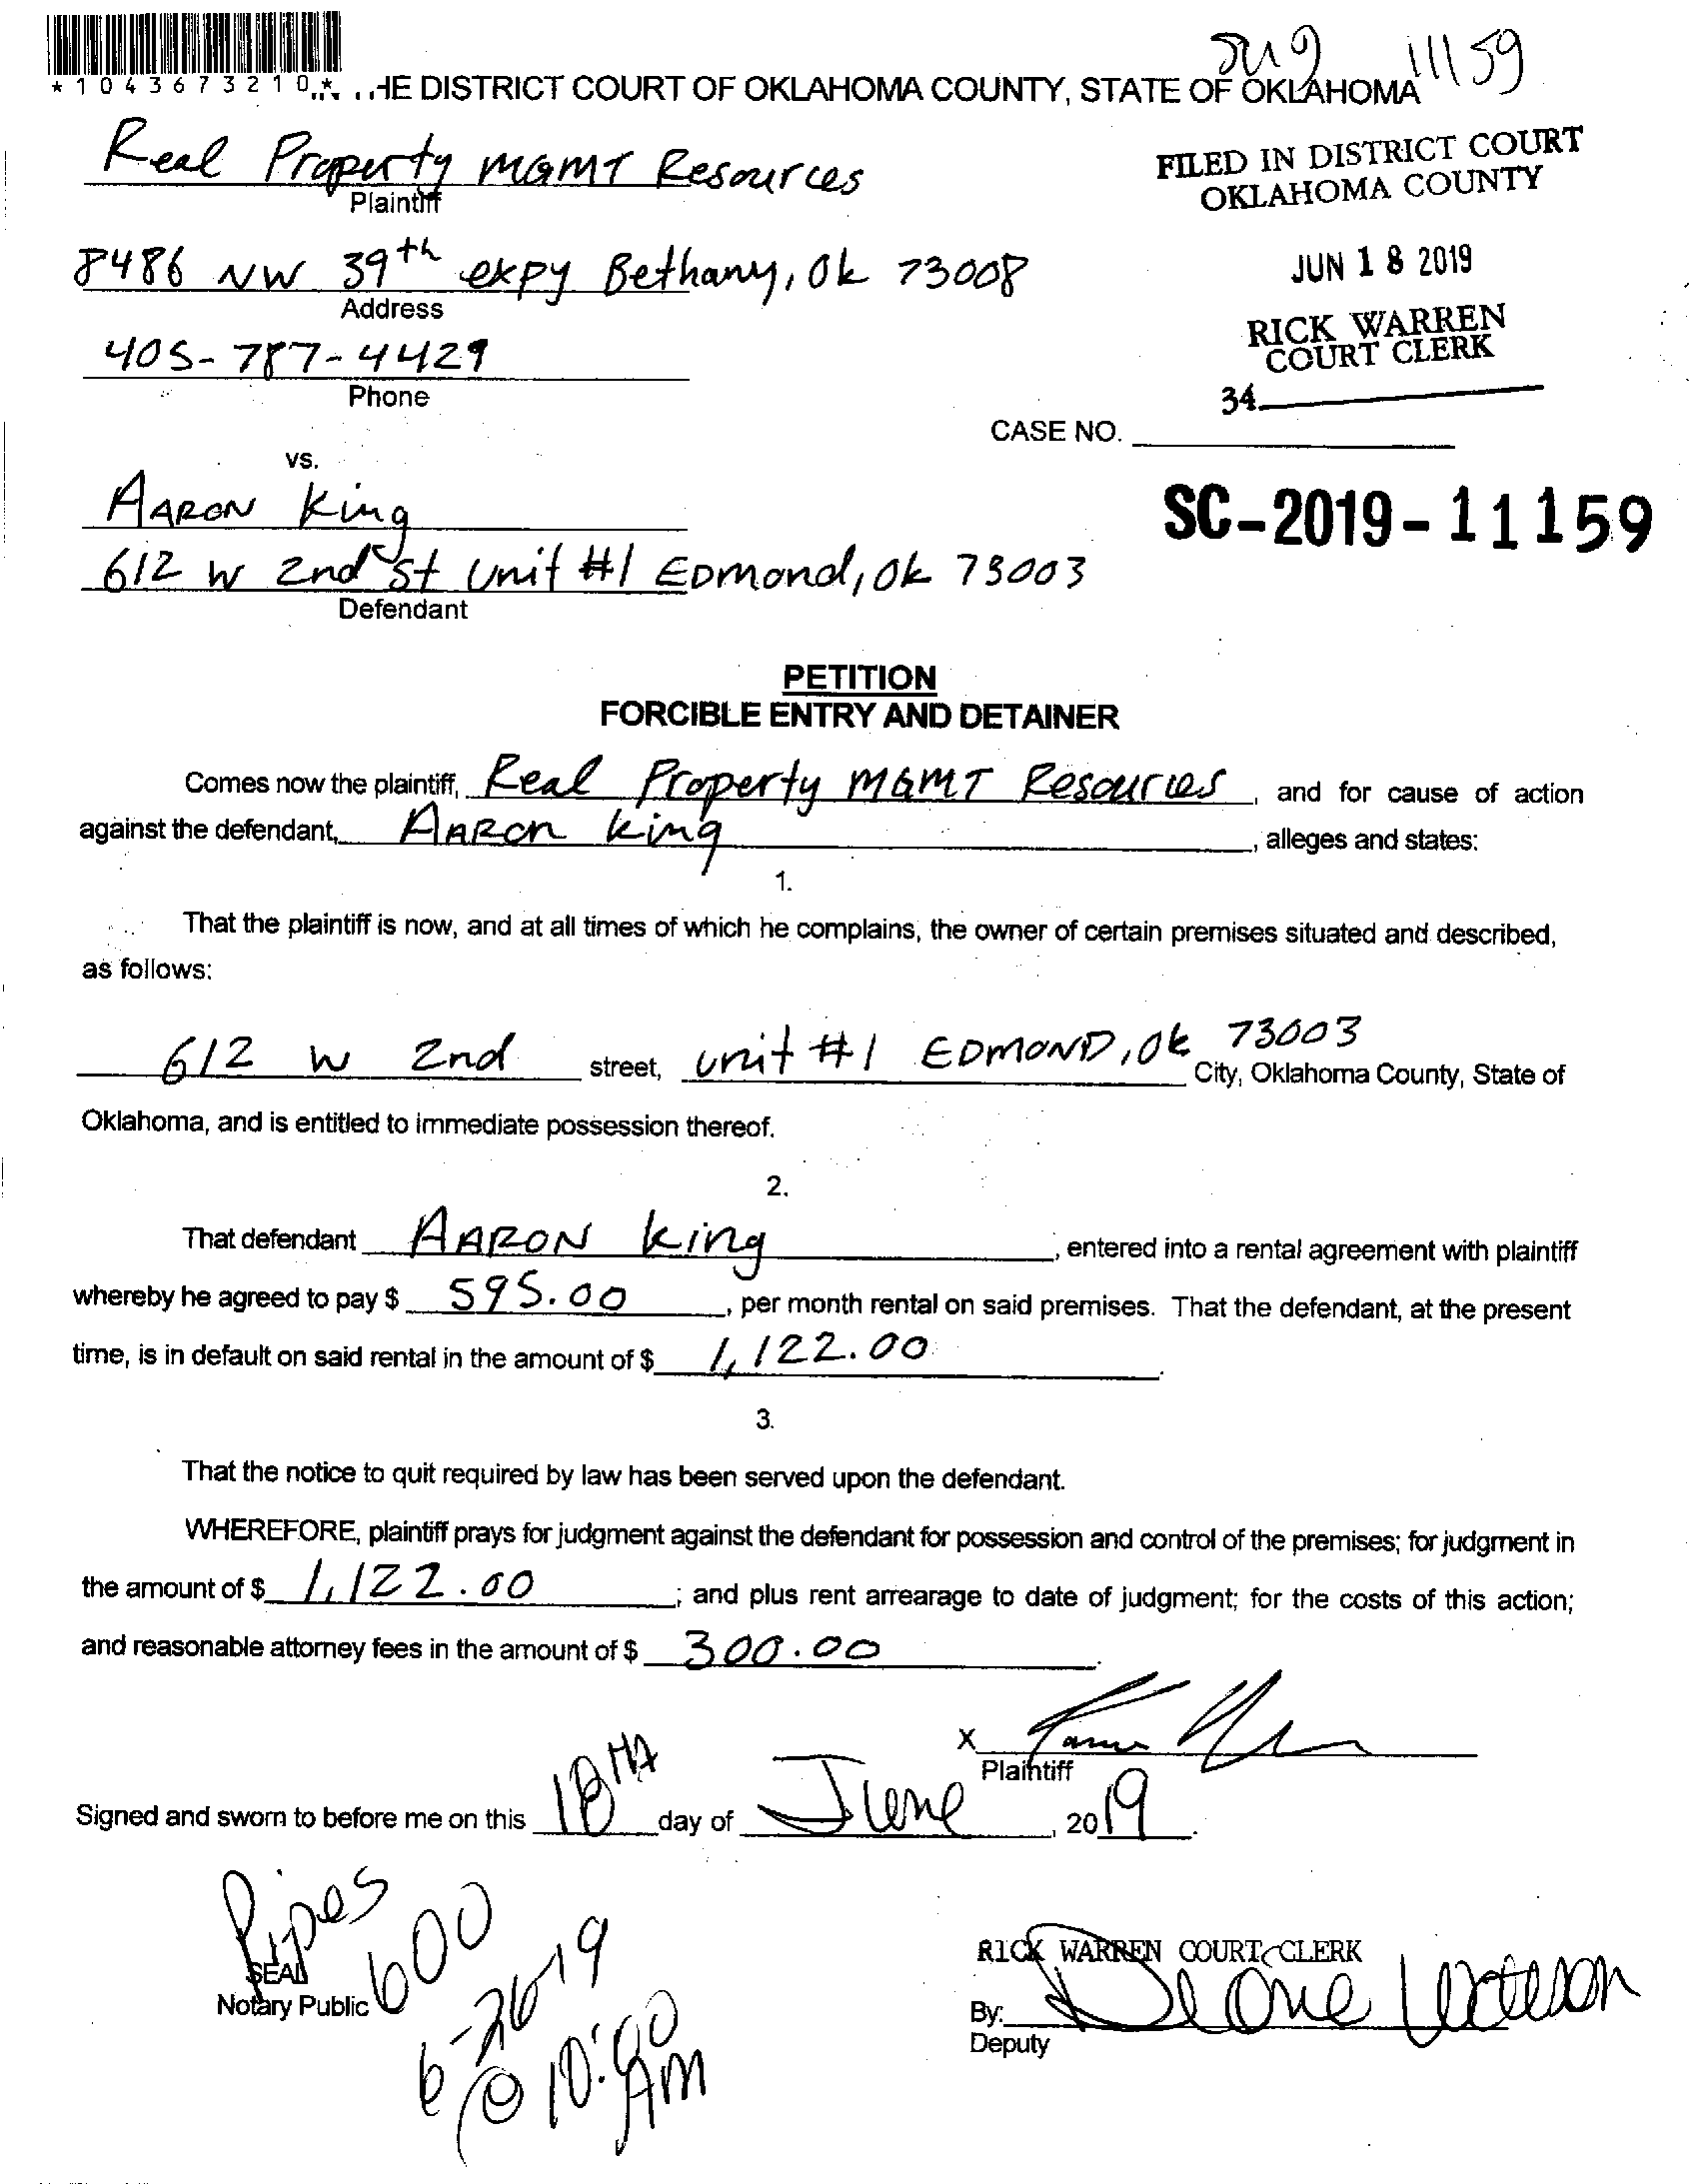 *1043673210* HE DISTRICT COURT OF OKLAHOMA COUNTY, STATE OF OKLAHOMA
11159
Real Property MGMT Resources
Plaintiff
FILED IN DISTRICT COURT
OKLAHOMA COUNTY
8486 NW 39th expy Bethany, Ok 73008
Address
JUN 18 2019
405-787-4429
Phone
RICK WARREN
COURT CLERK
34
CASE NO.
vs.
SC-2019-11159
AARON King
612 W 2nd St Unit #1 EDmond, Ok 73003
Defendant
PETITION
FORCIBLE ENTRY AND DETAINER
Comes now the plaintiff, Real Property MGMT Resources, and for cause of action
against the defendant, AARon king, alleges and states:
1.
That the plaintiff is now, and at all times of which he complains, the owner of certain premises situated and described,
as follows:
612 W 2nd street, unit #1 EDMOND, Ok 73003 City, Oklahoma County, State of
Oklahoma, and is entitled to immediate possession thereof.
2.
That defendant AARON king, entered into a rental agreement with plaintiff
whereby he agreed to pay $ 595.00, per month rental on said premises. That the defendant, at the present
time, is in default on said rental in the amount of $ 1,122.00.
3.
That the notice to quit required by law has been served upon the defendant.
WHEREFORE, plaintiff prays for judgment against the defendant for possession and control of the premises; for judgment in
the amount of $ 1,122.00; and plus rent arrearage to date of judgment; for the costs of this action;
and reasonable attorney fees in the amount of $ 300.00.
X
Plaintiff
Signed and sworn to before me on this 18TH day of June, 2019.
Pipes
600
6-26-19
@ 10:00
AM
SEAL
Notary Public
RICK WARREN COURT CLERK
By:
Deputy